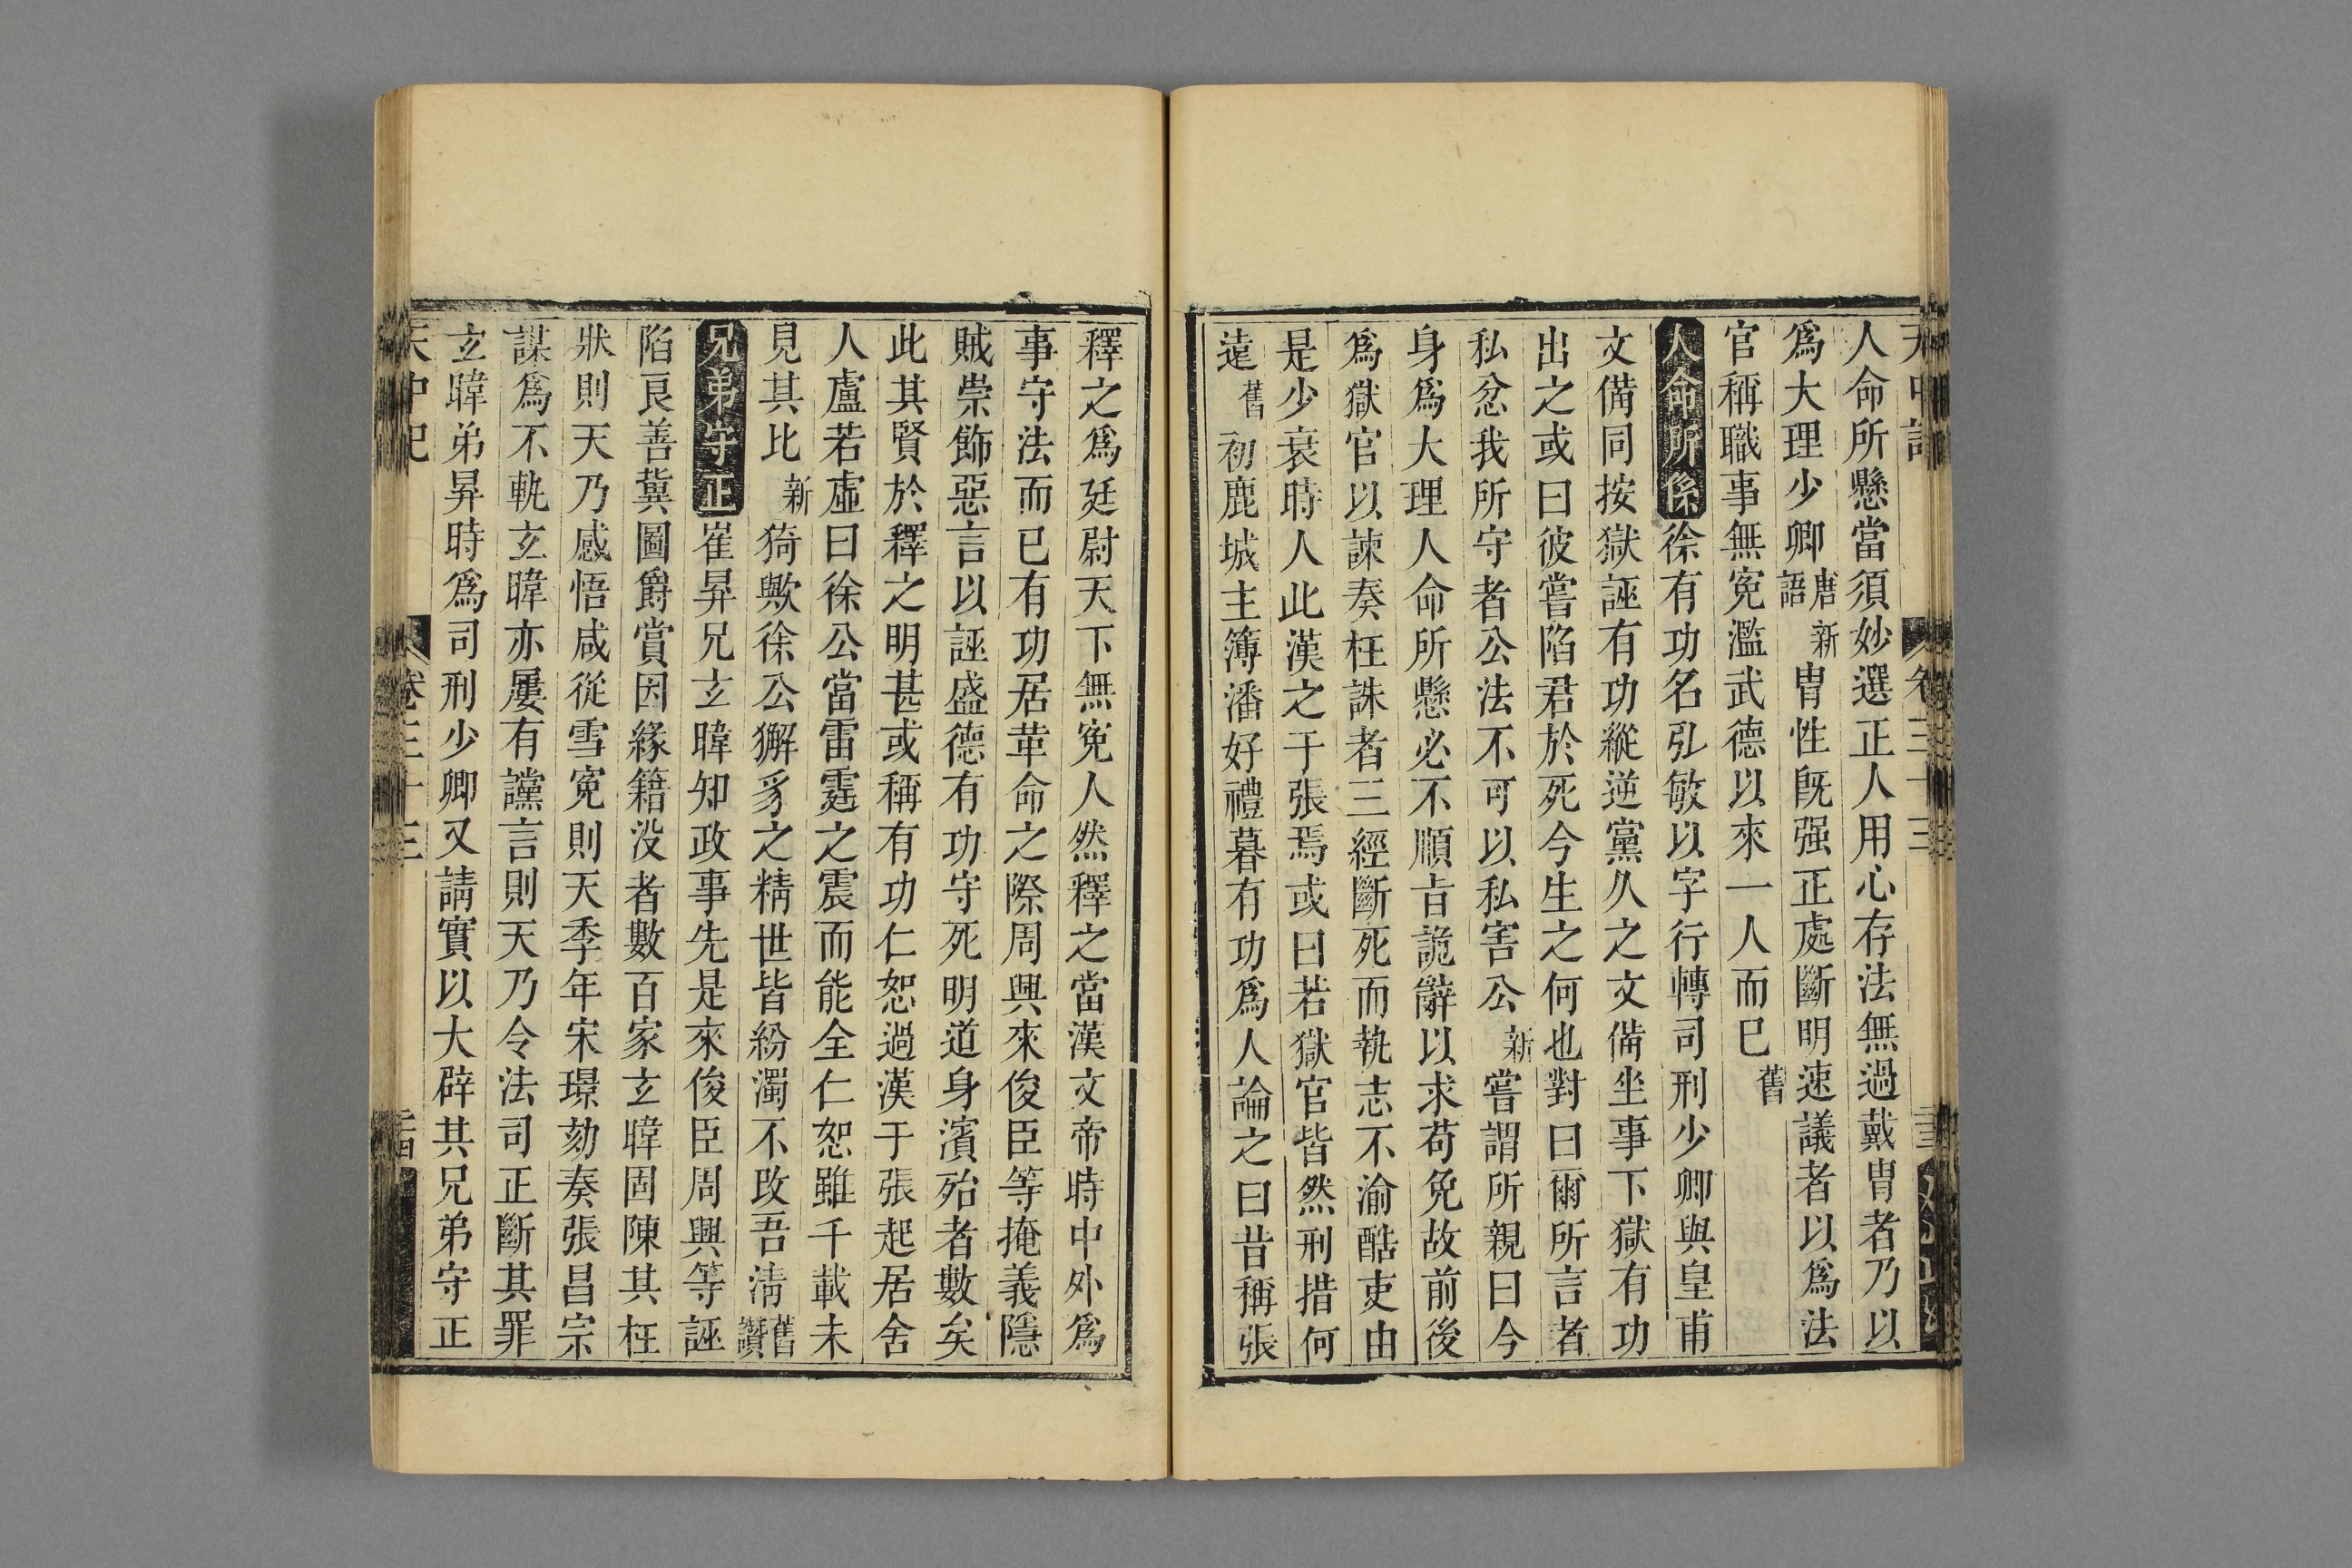 人命所懸當須妙選正人用心存法無過戴胄者乃以
爲大理少卿唐新語新胄性旣强正處斷明速議者以爲法
官稱職事無寃濫武德以來一人而巳舊
人命所係徐有功名弘敏以字行轉司刑少卿與皇甫
文備同按獄誣有功縱逆黨久之文備坐事下獄有功
出之或曰彼嘗陷君於死今生之何也對曰爾所言者
私忿我所守者公法不可以私害公新嘗謂所親曰今
身爲大理人命所懸必不順旨詭辭以求苟免故前後
爲獄官以諫奏枉誅者三經斷死而執志不渝酷吏由
是少衰時人此漢之于張焉或曰若獄官皆然刑措何
遠舊初鹿城主簿潘好禮暮有功爲人論之曰昔稱張
釋之爲廷尉天下無寃人然釋之當漢文帝時中外爲
事守法而已有功居革命之際周興來俊臣等掩義隱
賊崇飾惡言以誣盛德有功守死明道身濱殆者數矣
此其賢於釋之明甚或稱有功仁恕過漢于張起居舍
人盧若虛曰徐公當雷霆之震而能全仁恕雖千載未
見其比新猗歟徐公獬豸之精世皆紛濁不改吾淸舊讚
兄弟守正崔昇兄玄暐知政事先是來俊臣周興等誣
陷良善冀圖爵賞因緣籍没者數百家玄暐固陳其枉
狀則天乃感悟咸從雪寃則天季年宋璟劾奏張昌宗
謀爲不軌玄暐亦屢有讜言則天乃令法司正斷其罪
玄暐弟昇時爲司刑少卿又請實以大辟其兄弟守正
天中記
卷三十三